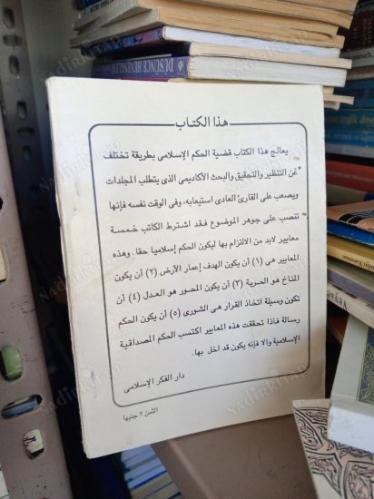 هذا الكتاب
يعالج هذا الكتاب قضية الحكم الإسلامى بطريقة تختلف
عن التنظير والتحقيق والبحث الأكاديمى الذى يتطلب المجلدات
ويصعب على القارئ العادى استيعابه، وفى الوقت نفسه فإنها
تنصب على جوهر الموضوع فقد اشترط الكاتب خمسة
معايير لابد من الالتزام بها ليكون الحكم إسلاميا حقا. وهذه
المعايير هى (١) أن يكون الهدف إعمار الأرض (٢) أن يكون
المناخ هو الحرية (٣) أن يكون المحور هو العدل (٤) أن
تكون وسيلة اتخاذ القرار هى الشورى (٥) أن يكون الحكم
رسالة فاذا تحققت هذه المعايير اكتسب الحكم المصداقية
الإسلامية والا فإنه يكون قد اخل بها.
دار الفكر الإسلامى
الثمن ٢ جنيها
DÜŞÜNCE